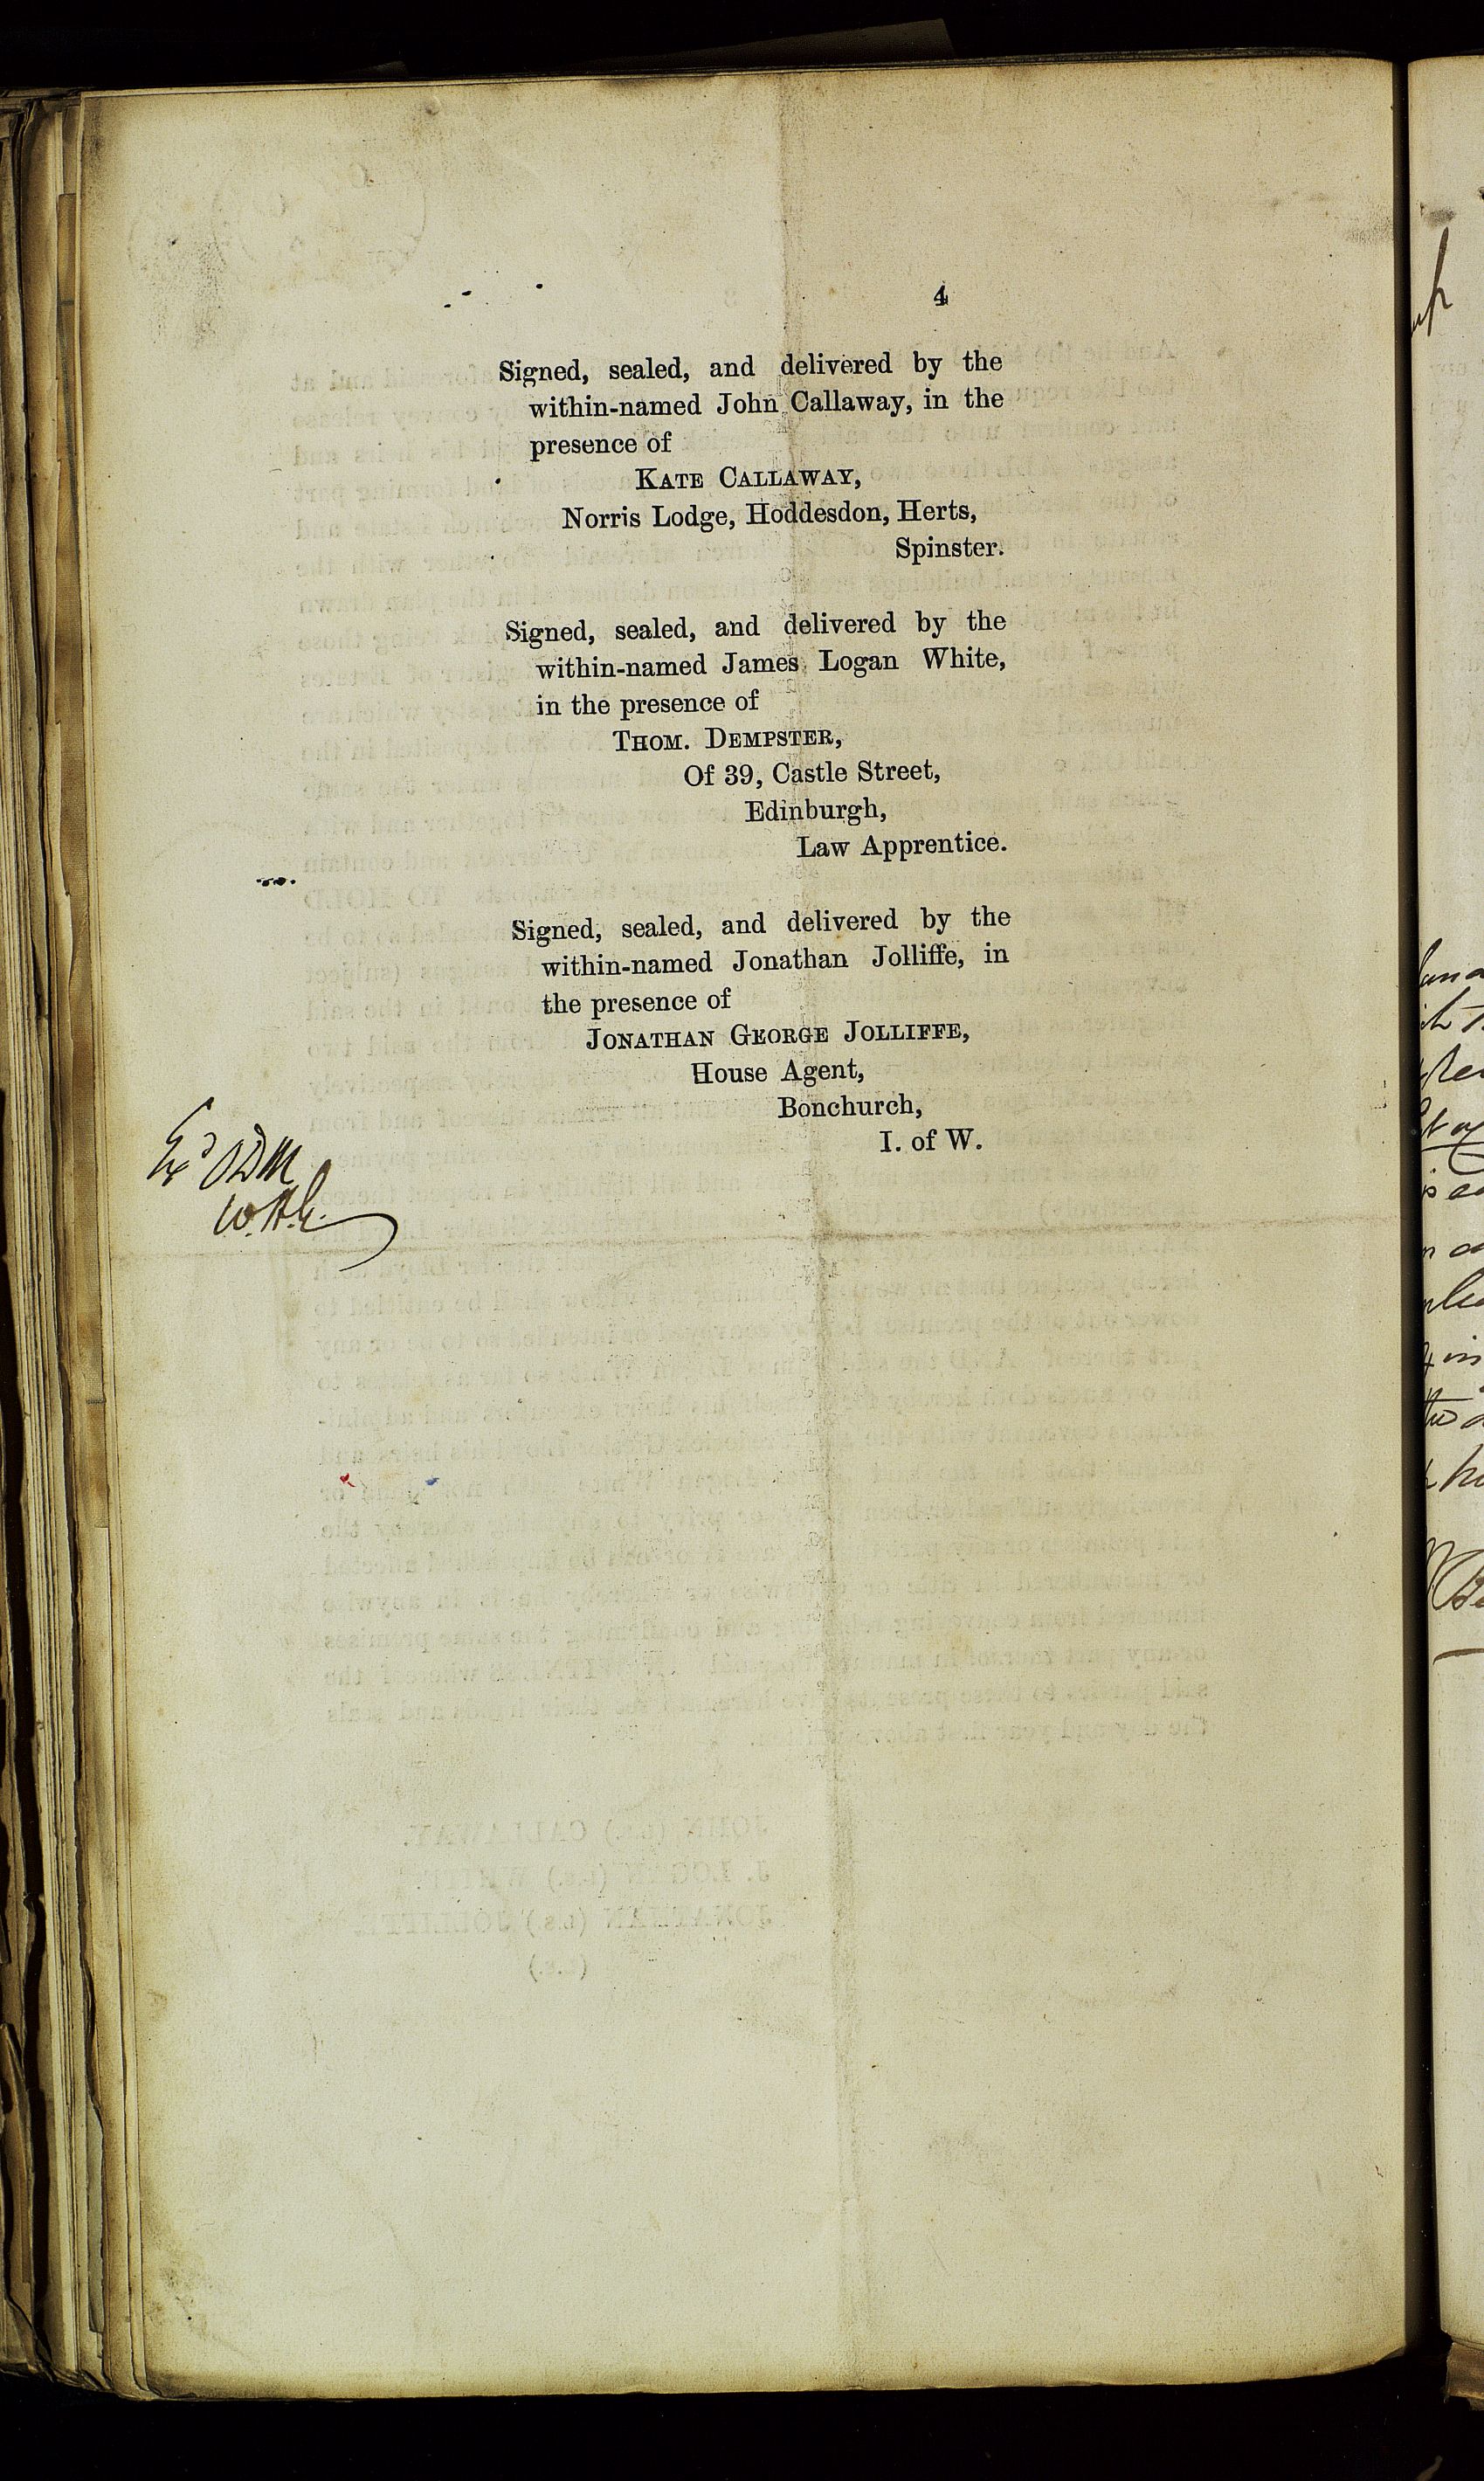 4
Signed, sealed, and delivered by the
within-named John Callaway, in the
presence of
KATE CALLAWAY,
Norris Lodge, Hoddesdon, Herts,
Spinster.
Signed, sealed, and delivered by the
within-named James Logan White,
in the presence of
THOM. DEMPSTER,
Of 39, Castle Street,
Edinburgh,
Law Apprentice.
Signed, sealed, and delivered by the
within-named Jonathan Jolliffe, in
the presence of
JONATHAN GEORGE JOLLIFFE,
House Agent,
Bonchurch,
I. of W.
Exd